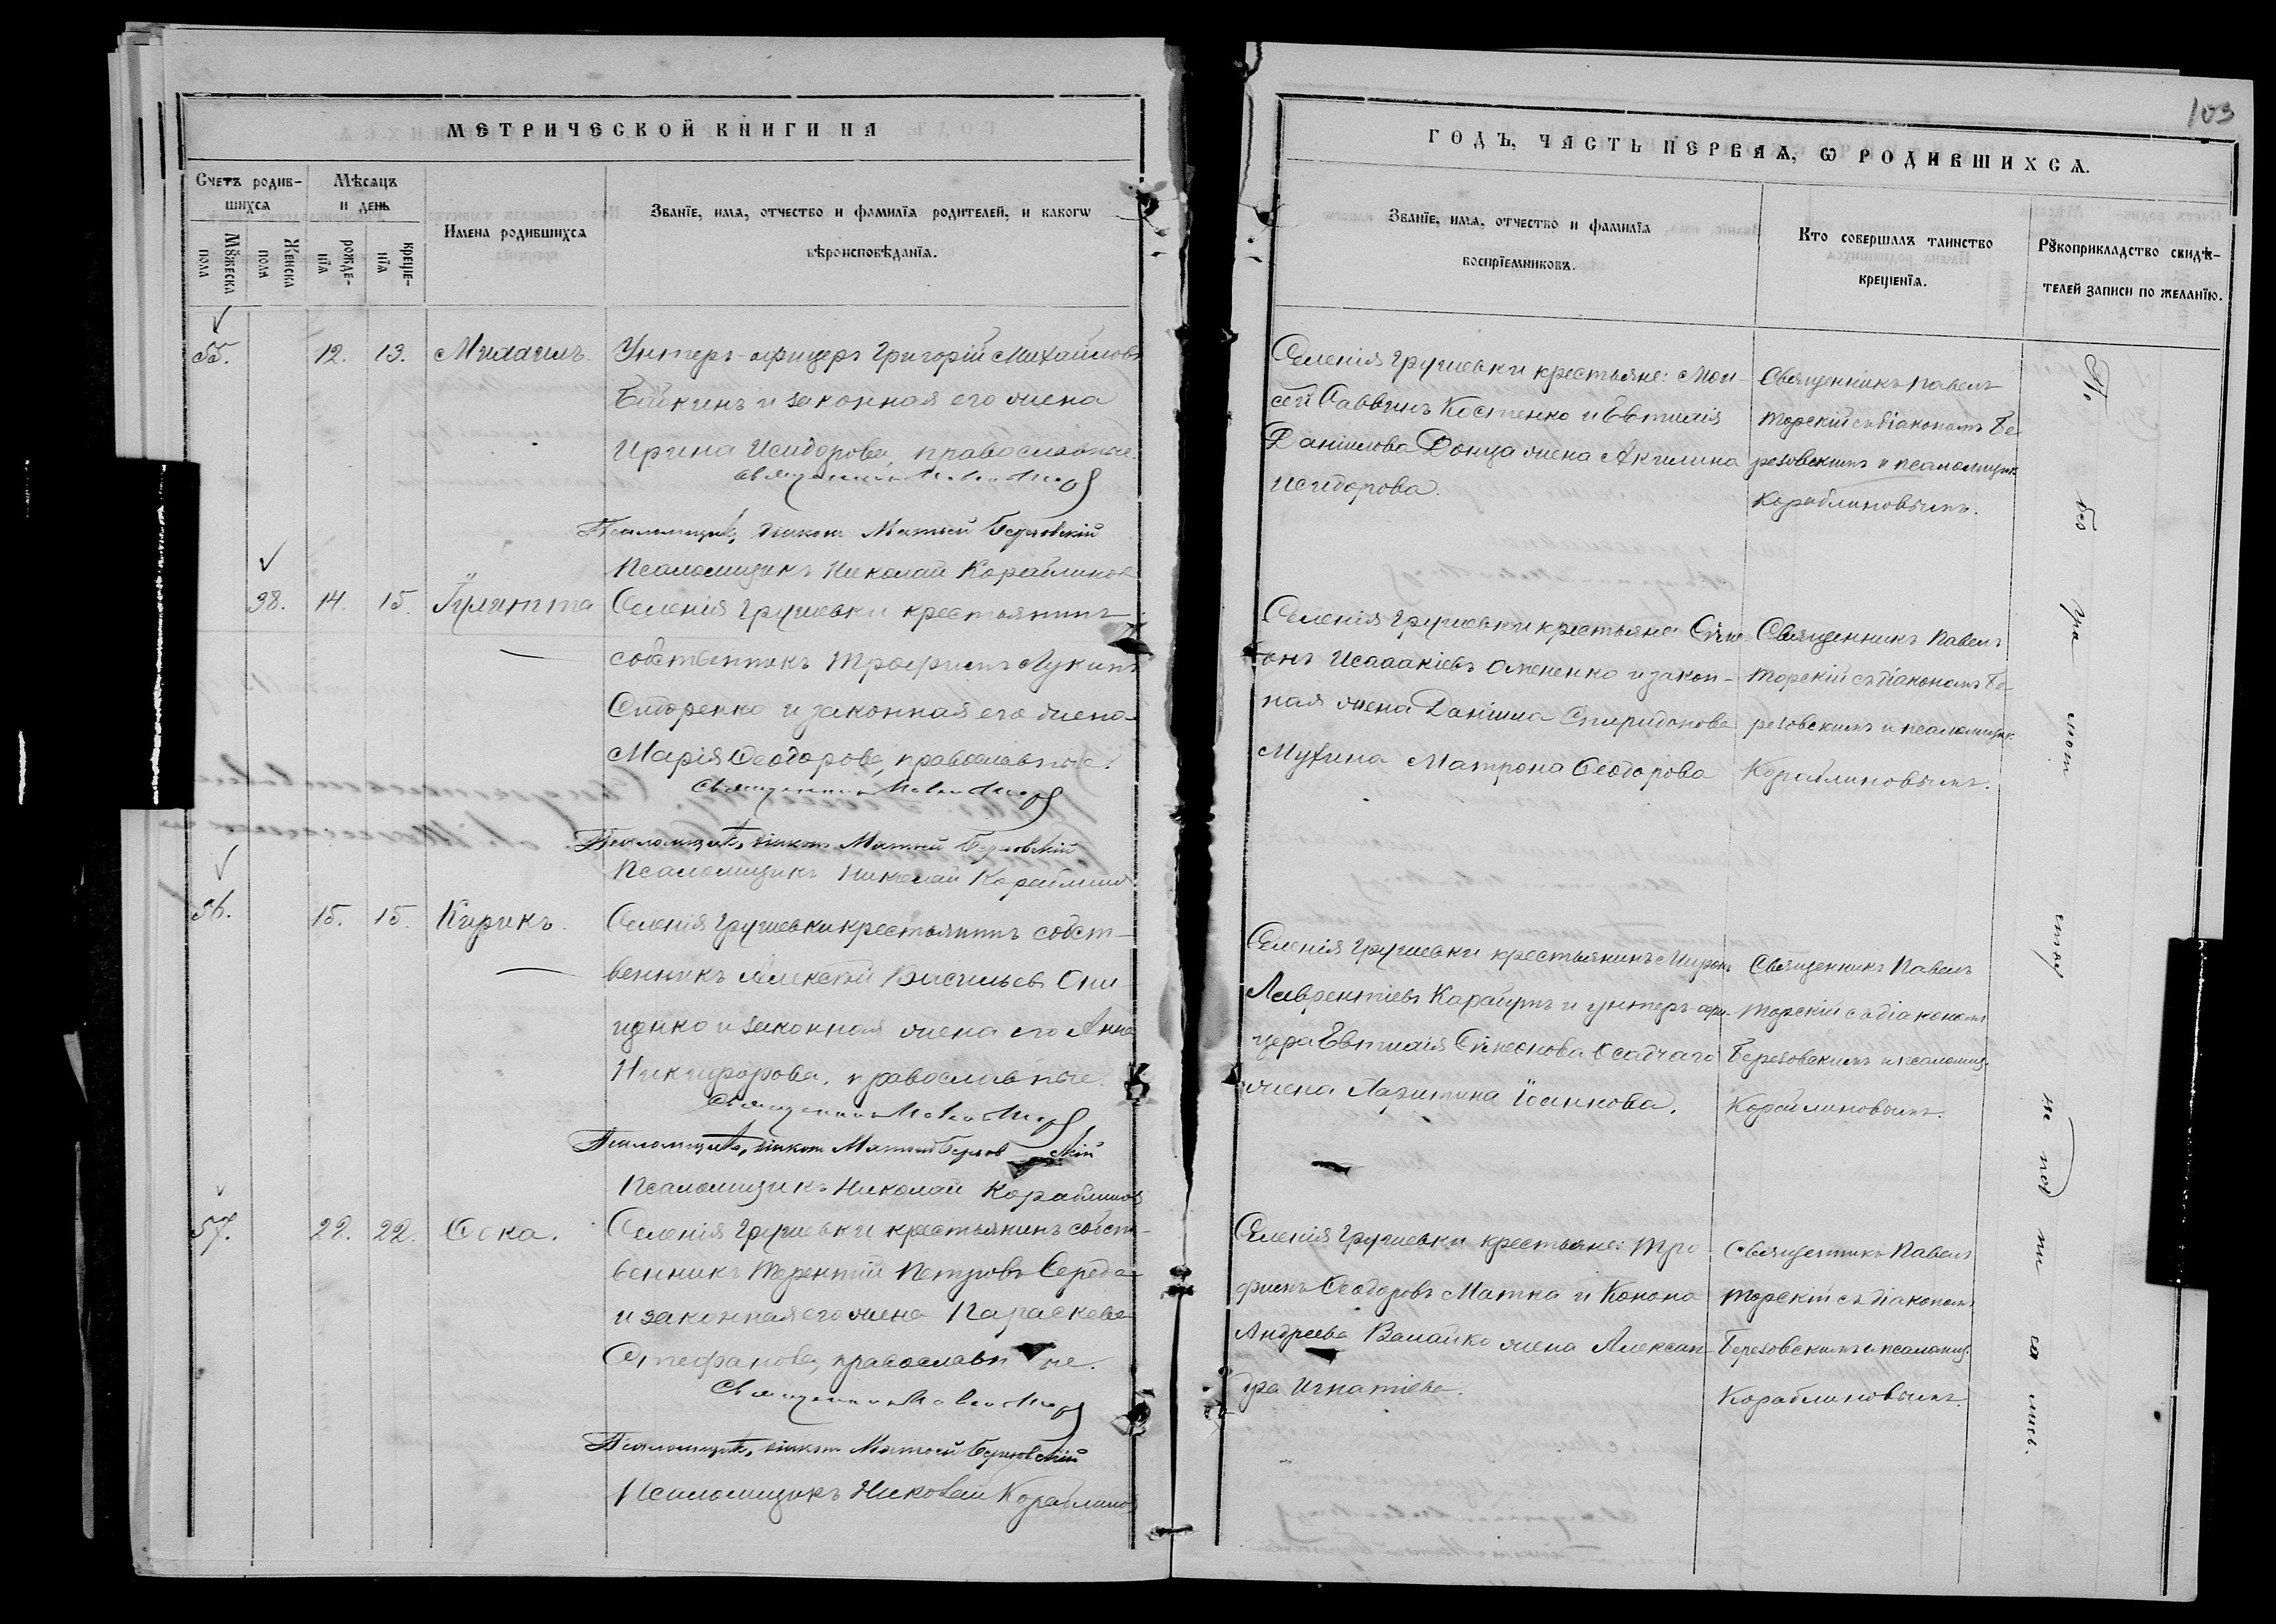 103
МЕТРИЧЕСКОЙ КНИГИ НА
ГОДЪ, ЧАСТЬ ПЕРВАѦ, Ѡ РОДИВШИХСѦ.
Счетъ родив-
шихсѧ
Мꙋжеска
пола
Женска
пола
Мѣсѧцъ
и день
рожде-
нїѧ
креще-
нїѧ
Имена родившихсѧ
Званїе, имѧ, отчество и фамилїѧ родителей, и какогѡ
вѣроисповѣданїѧ.
Званїе, имѧ, отчество и фамилїѧ
воспрїемниковъ.
Кто совершалъ таинство
крещенїѧ.
Рꙋкоприкладство свидѣ-
телей записи по желанїю.
55. 12. 13. Михаилъ.
Унтеръ-офицеръ Григорій Михайловъ
Байкинъ и законная его жена
Ирина Исидорова, православные.
Священникъ Павелъ
Псаломщикъ, діаконъ Матѳей Березовскій
Псаломщикъ Николай Кораблиновъ
Селенія Грушевки крестьяне: Мои-
сей Саввинъ Костенко и Евтихія
Даніилова Донца жена Акилина
Исидорова.
Священникъ Павелъ
Торскій съ діакономъ Бе-
резовскимъ и псаломщик.
Кораблиновымъ.
38. 14. 15. Іулитта
Селенія Грушевки крестьянинъ
собственникъ Трофимъ Лукинъ
Сидоренко и законная его жена
Марія Ѳеодорова, православные.
Священникъ Павелъ
Псаломщикъ, діаконъ Матѳей Березовскій
Псаломщикъ Николай Кораблиновъ
Селенія Грушевки крестьяне: Симе-
онъ Исаакіевъ и закон-
ная жена Даніила Спиридонова
Матрона Ѳеодорова
Священникъ Павелъ
Торскій съ діакономъ Бе-
резовскимъ и псаломщик.
Кораблиновымъ.
56. 15. 15. Кирикъ.
Селенія Грушевки крестьянинъ собст-
венникъ Алексѣй Васильевъ Они-
щенко и законная жена его Анна
Никифорова, православные.
Священникъ Павелъ
Псаломщикъ, діаконъ Матѳей Березовскій
Псаломщикъ Николай Кораблиновъ
Селенія Грушевки крестьянинъ Миронъ
Лаврентіевъ и унтеръ-офи-
цера Евтихія Симеонова Осадчаго
жена Іоаннова.
Священникъ Павелъ
Торскій съ діакономъ
Березовскимъ и псаломщ.
Кораблиновымъ.
57. 22. 22. Ѳока.
Селенія Грушевки крестьянинъ собст-
венникъ Терентій Петровъ Середа
и законная его жена Параскева
Стефанова, православные.
Священникъ Павелъ
Псаломщикъ, діаконъ Матѳей Березовскій
Псаломщикъ Николай Кораблиновъ
Селенія Грушевки крестьяне: Тро-
фимъ Ѳеодоровъ Матка и Конона
Андреева жена Алексан-
дра Игнатіева.
Священникъ Павелъ
Торскій съ діакономъ
Березовскимъ и псаломщ.
Кораблиновымъ.